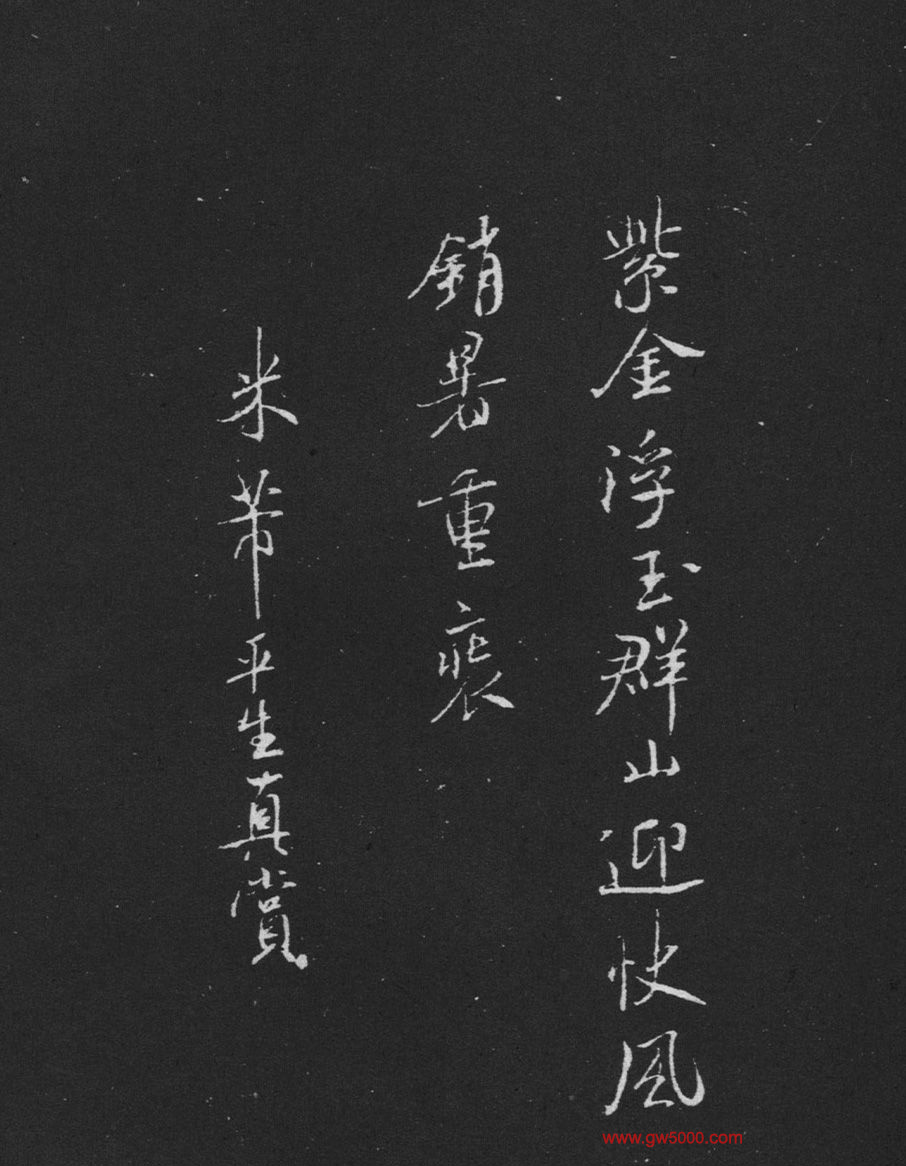 紫金浮玉群山迎快風
銷暑重裘
米芾平生真賞
www.gw5000.com